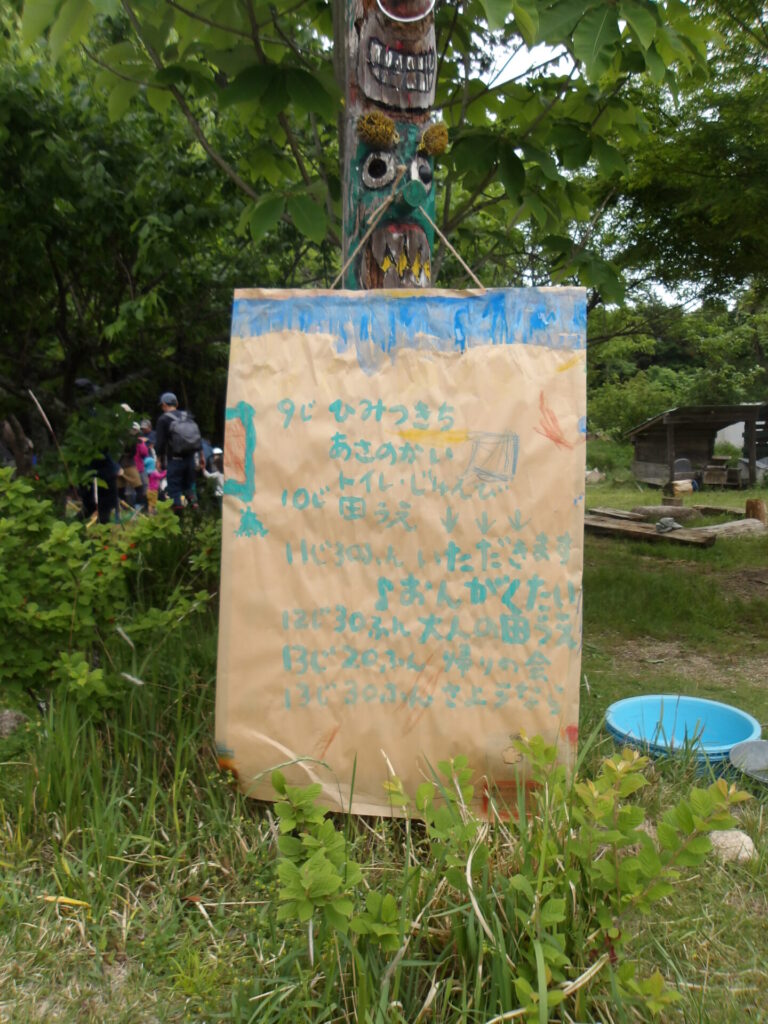 9じ ひみつきち
あさのかい
トイレ・じゅんび
10じ 田うえ ↓ ↓ ↓
11じ30ふん いただきます
♪おんがくたい
12じ30ふん 大人の田うえ
13じ20ふん 帰りの会
13じ30ふん さようなら